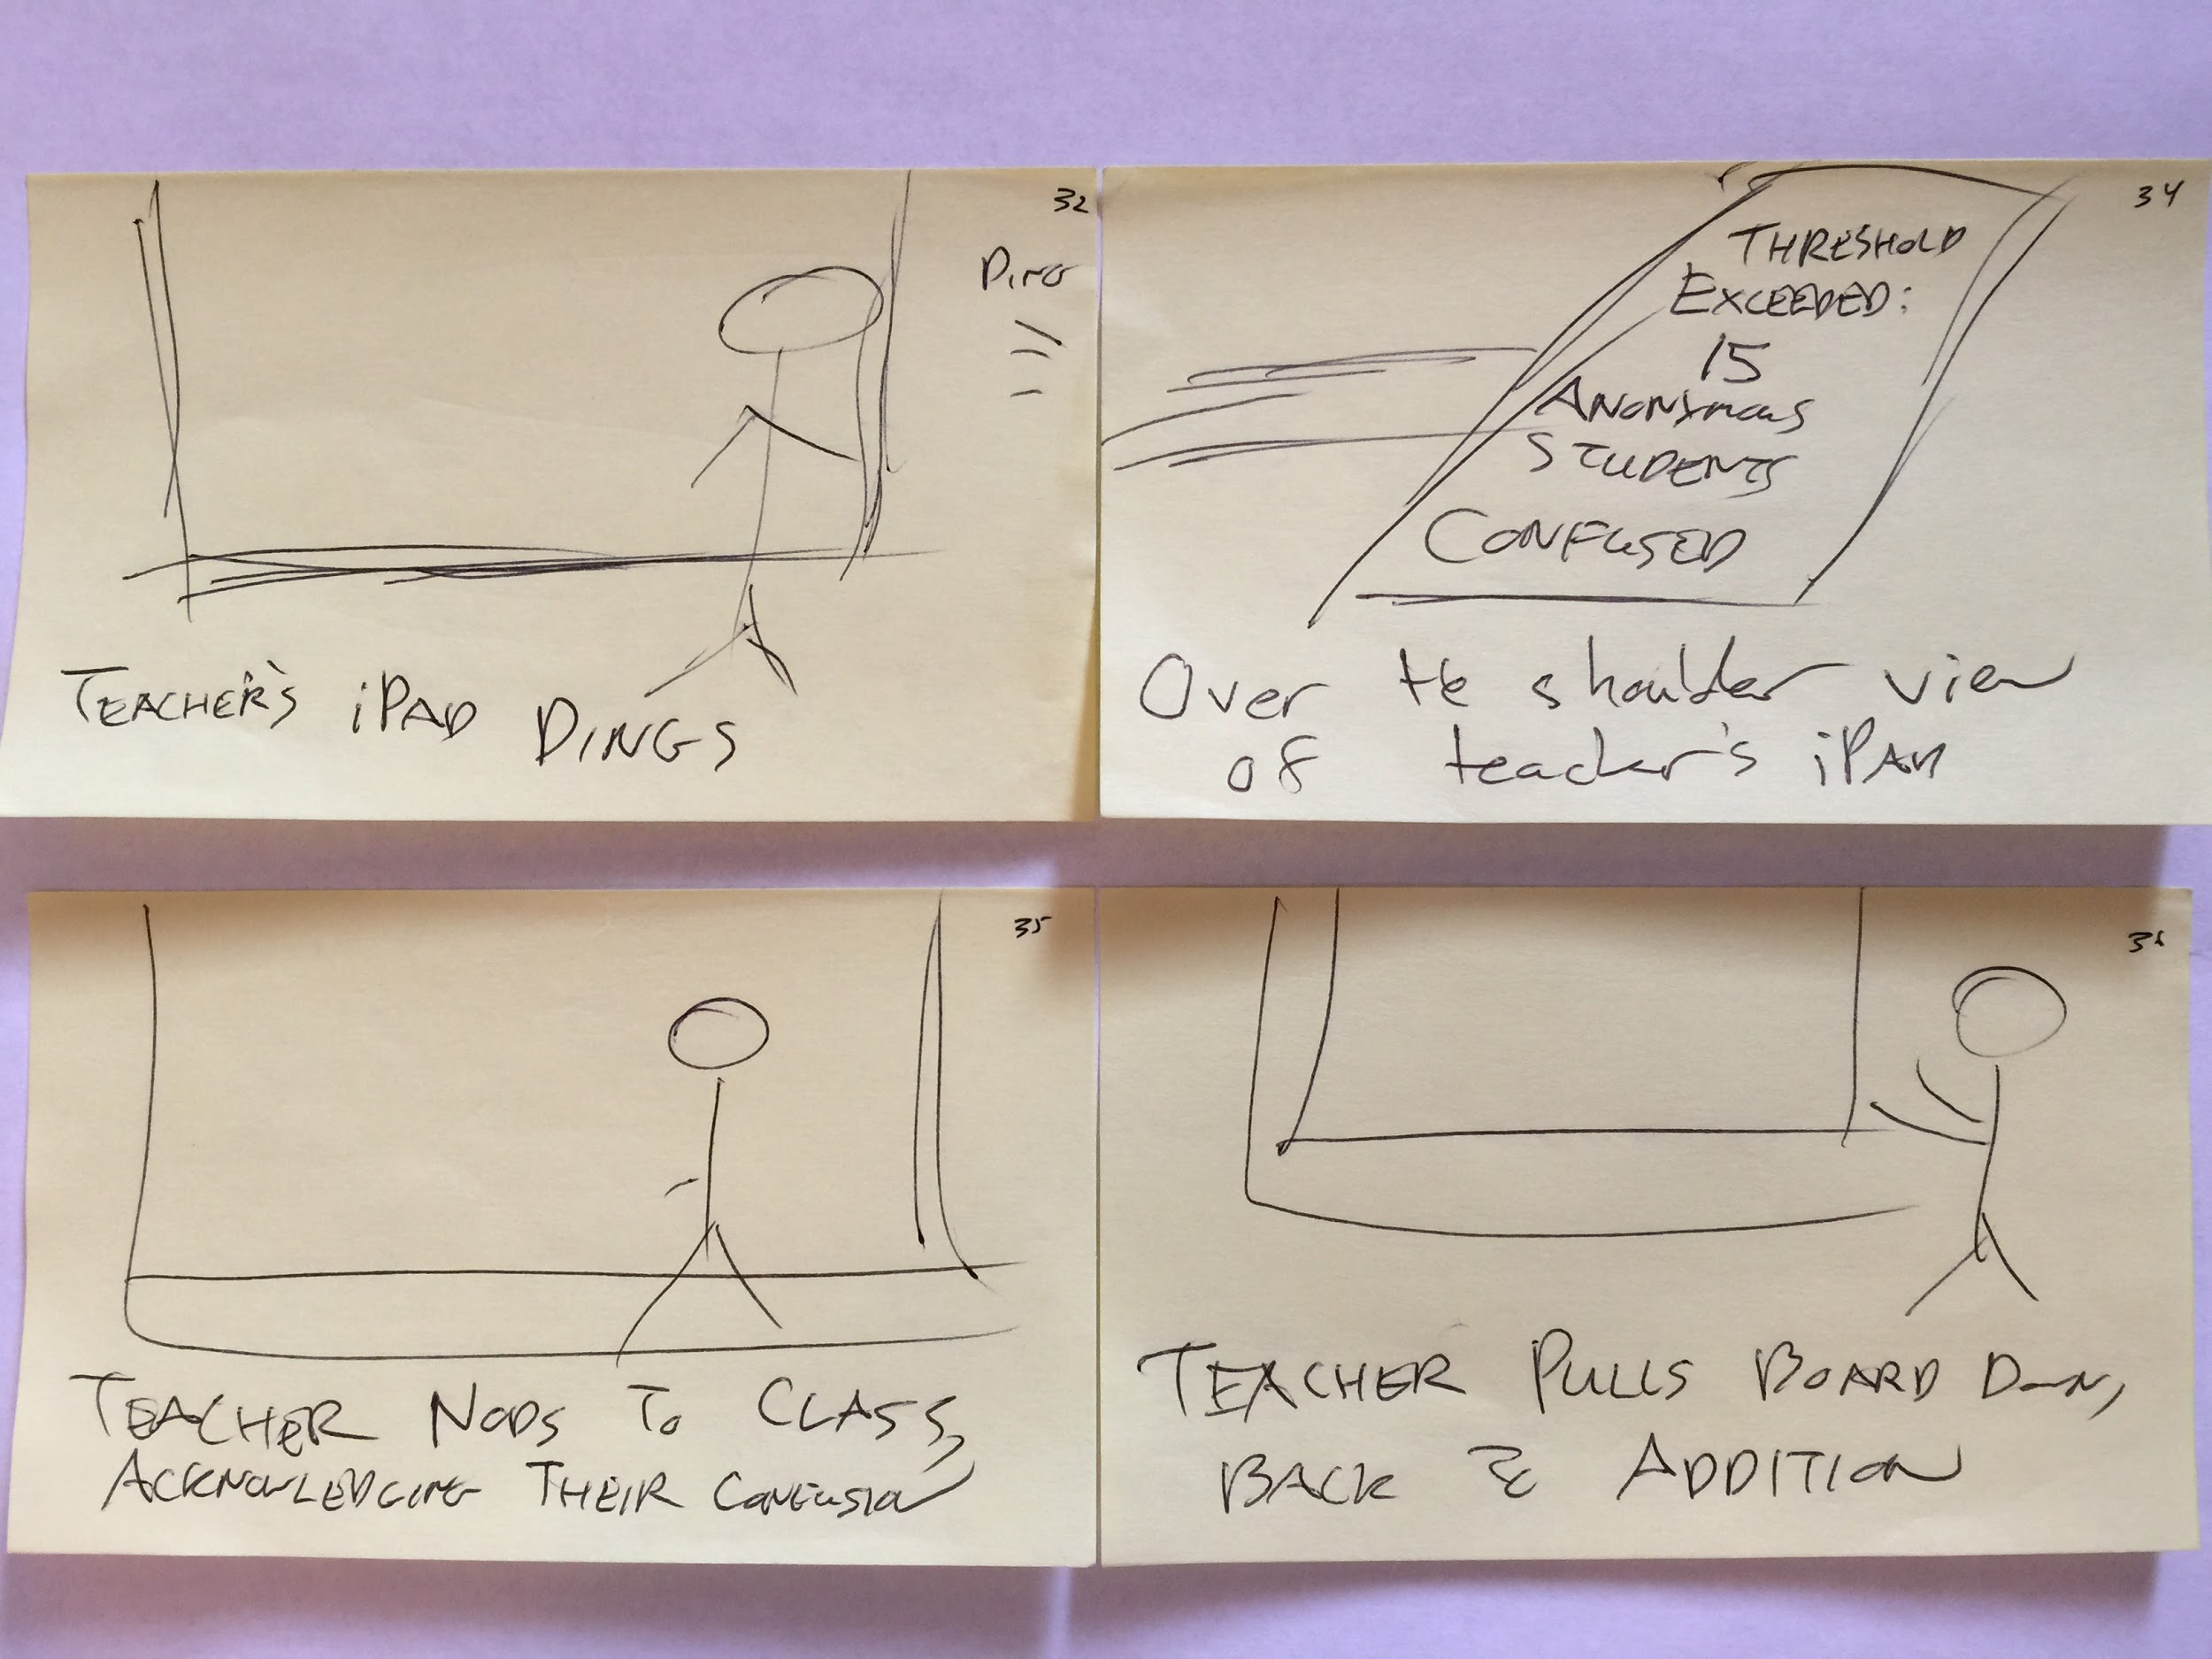 32
DING
TEACHER'S iPAD DINGS
34
THRESHOLD
EXCEEDED:
15
ANONYMOUS
STUDENTS
CONFUSED
Over the shoulder view
of teacher's iPAD
35
TEACHER NODS TO CLASS,
ACKNOWLEDGING THEIR CONFUSION
36
TEACHER PULLS BOARD DOWN,
BACK TO ADDITION